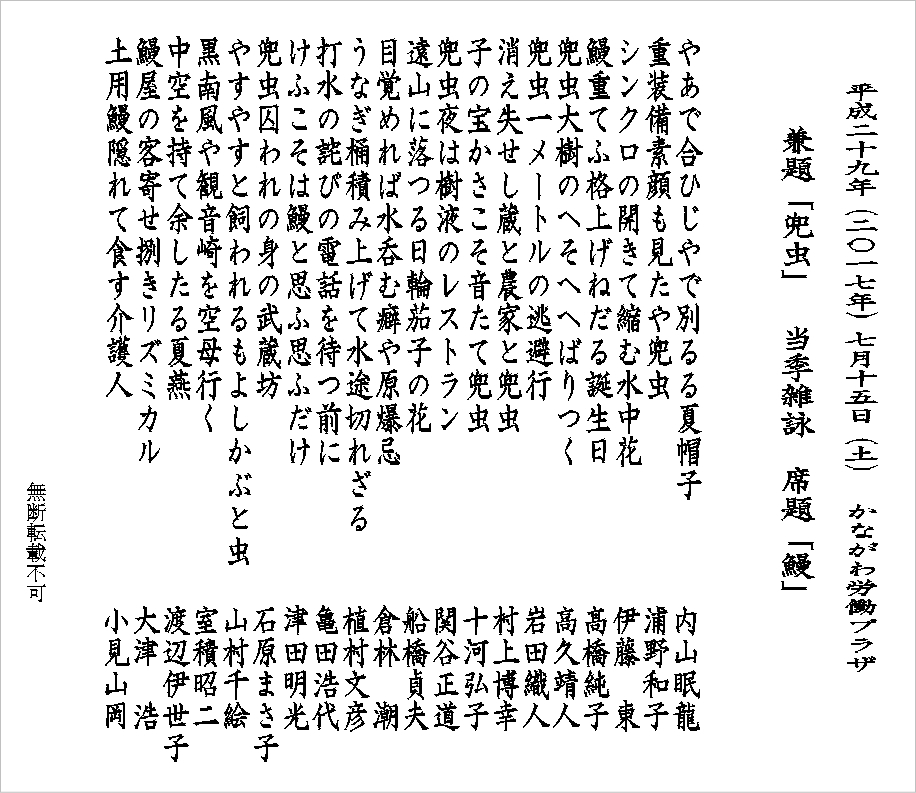 平成二十九年（二〇一七年）七月十五日（土） かながわ労働プラザ
兼題「兜虫」 当季雑詠 席題「鰻」
やあで合ひじやで別るる夏帽子 内山眠龍
重装備素顔も見たや兜虫 浦野和子
シンクロの開きて縮む水中花 伊藤 東
鰻重てふ格上げねだる誕生日 髙橋純子
兜虫大樹のへそへへばりつく 高久靖人
兜虫一メートルの逃避行 岩田織人
消え失せし蔵と農家と兜虫 村上博幸
子の宝かさこそ音たて兜虫 十河弘子
兜虫夜は樹液のレストラン 関谷正道
遠山に落つる日輪茄子の花 船橋貞夫
目覚めれば水呑む癖や原爆忌 倉林 潮
うなぎ桶積み上げて水途切れざる 植村文彦
打水の詫びの電話を待つ前に 亀田浩代
けふこそは鰻と思ふ思ふだけ 津田明光
兜虫囚われの身の武蔵坊 石原まさ子
やすやすと飼われるもよしかぶと虫 山村千絵
黒南風や観音崎を空母行く 室積昭二
中空を持て余したる夏燕 渡辺伊世子
鰻屋の客寄せ捌きリズミカル 大津 浩
土用鰻隠れて食す介護人 小見山岡
無断転載不可